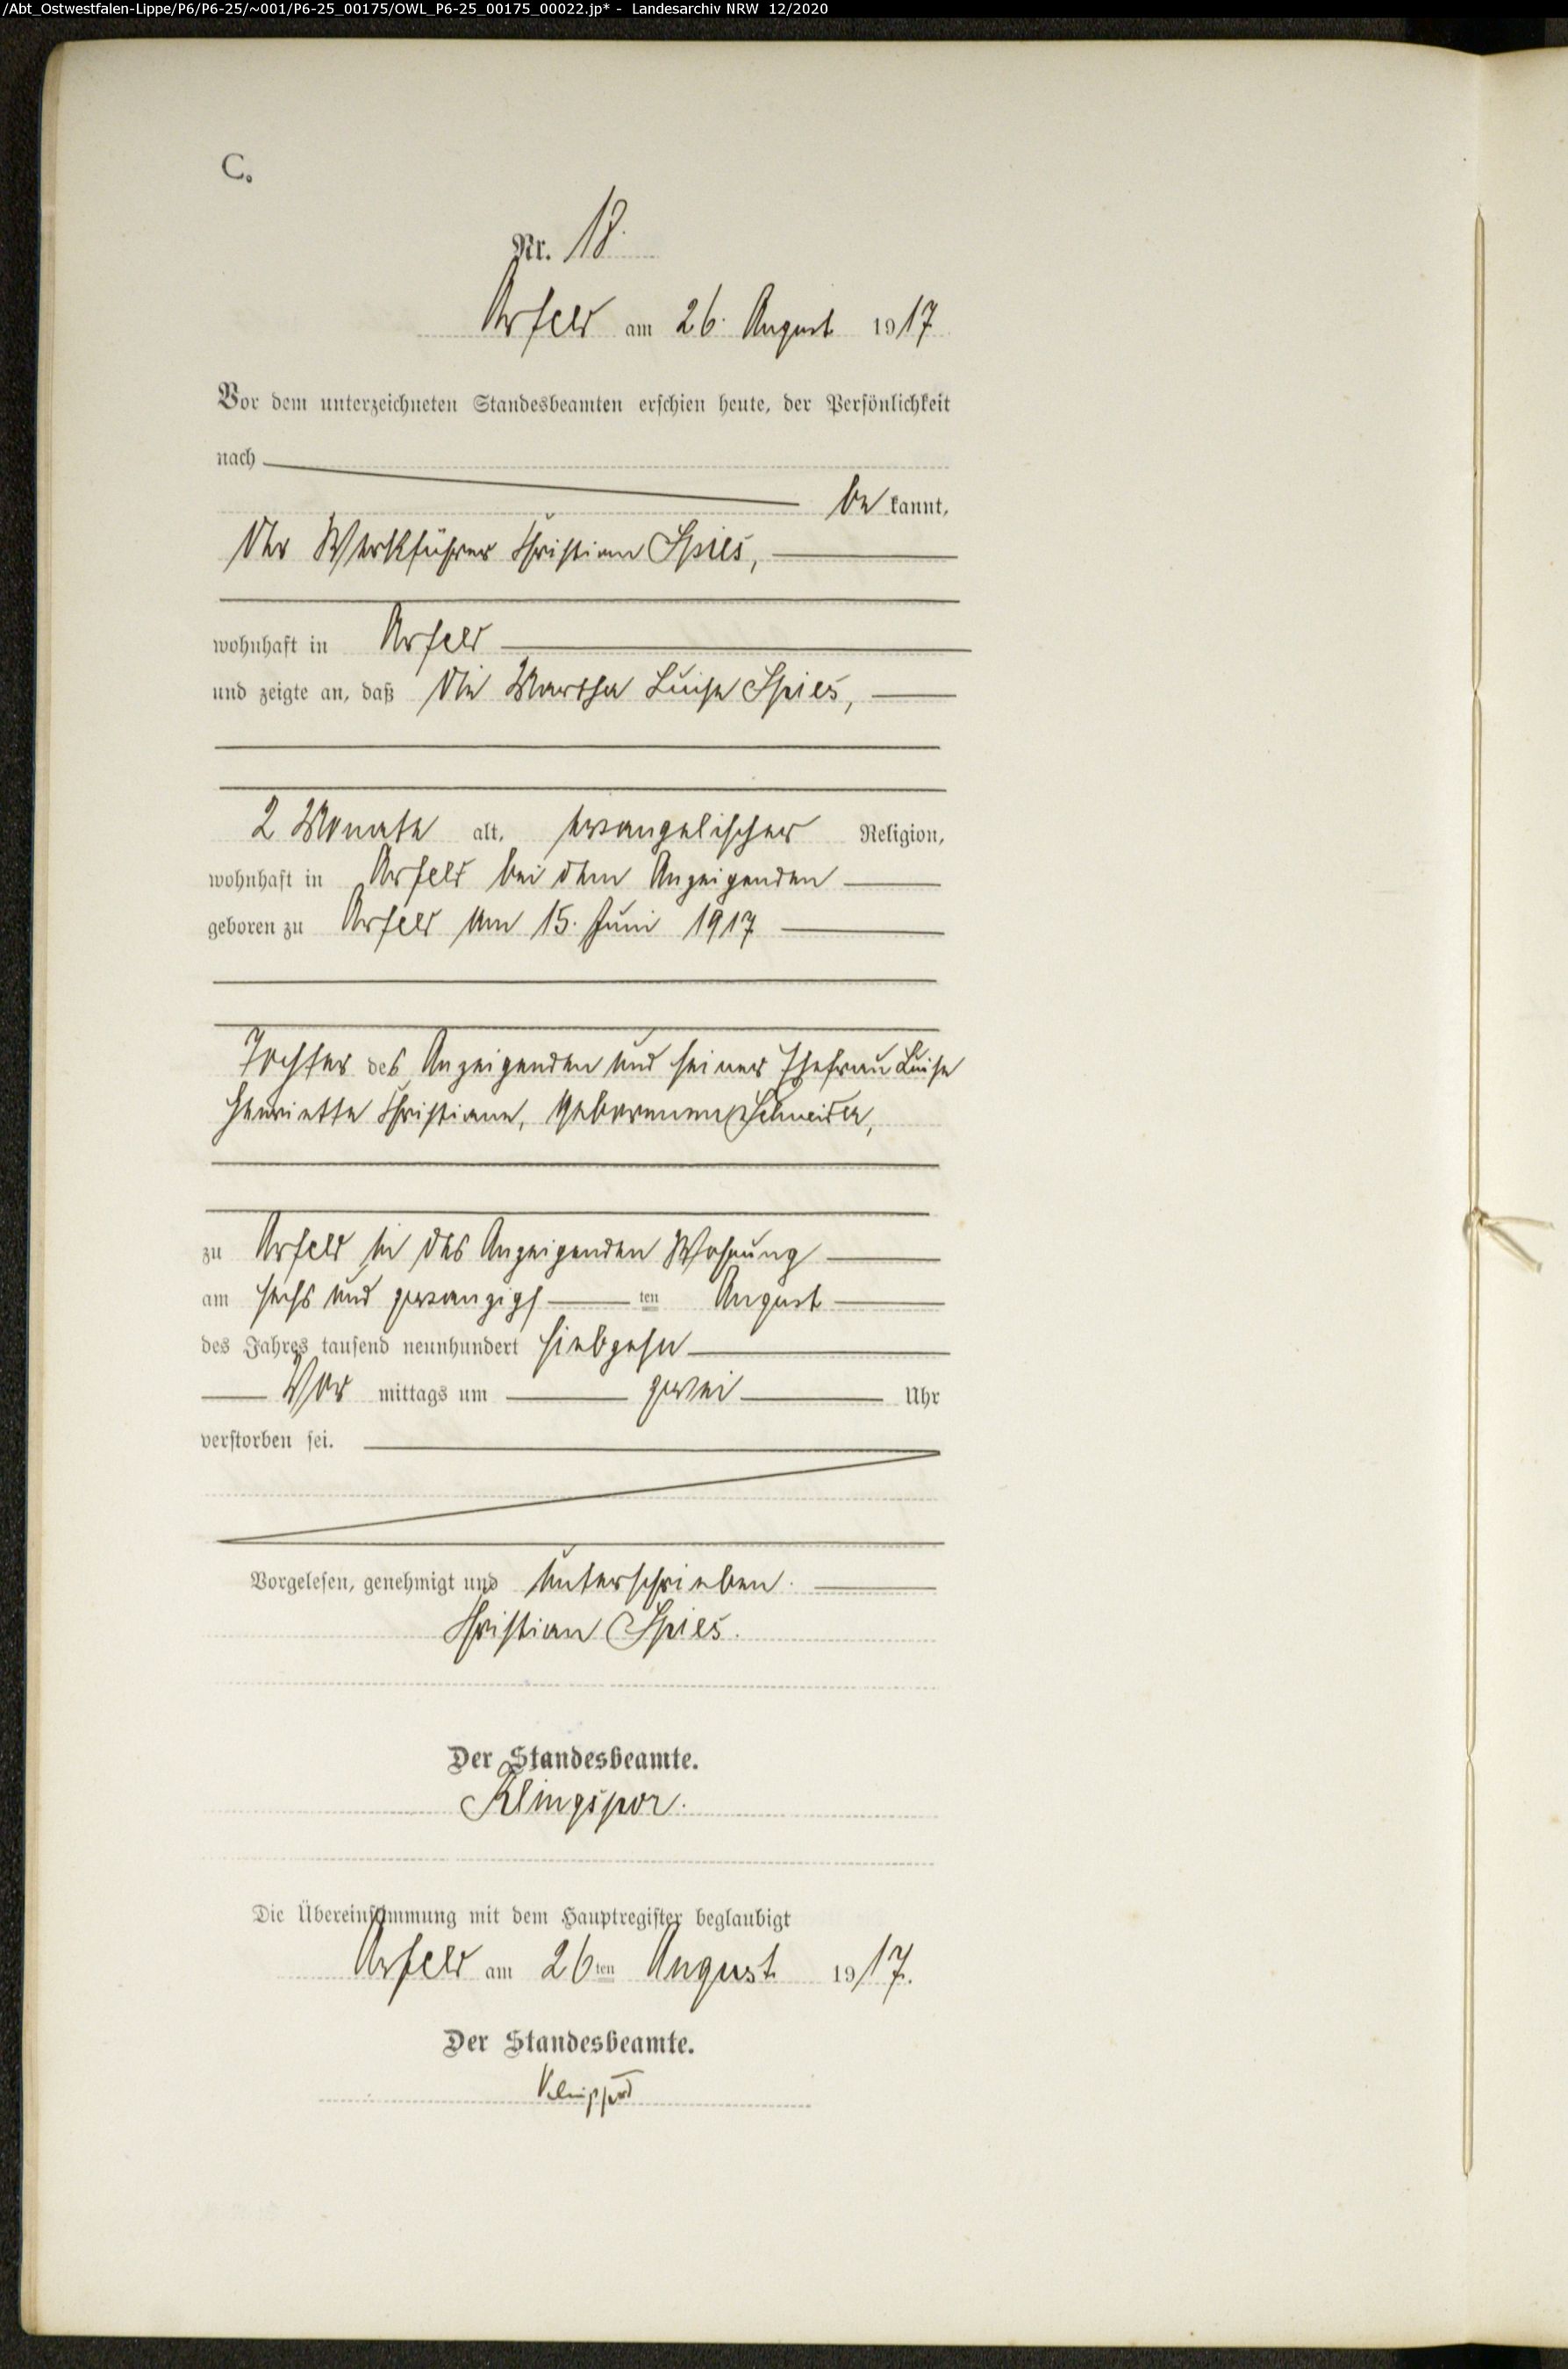 /Abt_Ostwestfalen-Lippe/P6/P6-25/~001/P6-25_00175/OWL_P6-25_00175_00022.jp* - Landesarchiv NRW 12/2020
C.
Nr. 18.
Arfeld am 26. August 1917
Vor dem unterzeichneten Standesbeamten erschien heute, der Persönlichkeit
nach
be kannt,
der Werkführer Christian Spies,
wohnhaft in Arfeld
und zeigte an, daß die Martha Luise Spies,
2 Monate alt, evangelischer Religion,
wohnhaft in Arfeld bei dem Anzeigenden
geboren zu Arfeld am 15. Juni 1917
Tochter des Anzeigenden und seiner Ehefrau Luise
Henriette Christiane, geborenen Schneider,
zu Arfeld in des Anzeigenden Wohnung
am sechs und zwanzigsten August
des Jahres tausend neunhundert siebzehn
Vor mittags um zwei Uhr
verstorben sei.
Vorgelesen, genehmigt und unterschrieben.
Christian Spies.
Der Standesbeamte.
Klingspor.
Die Übereinstimmung mit dem Hauptregister beglaubigt
Arfeld am 26ten August 1917.
Der Standesbeamte.